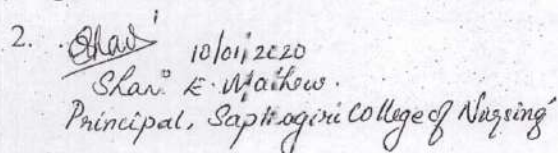 2. Shaw 10/01/2020
Shani E. Mathew.
Principal, Sapthagiri College of Nursing